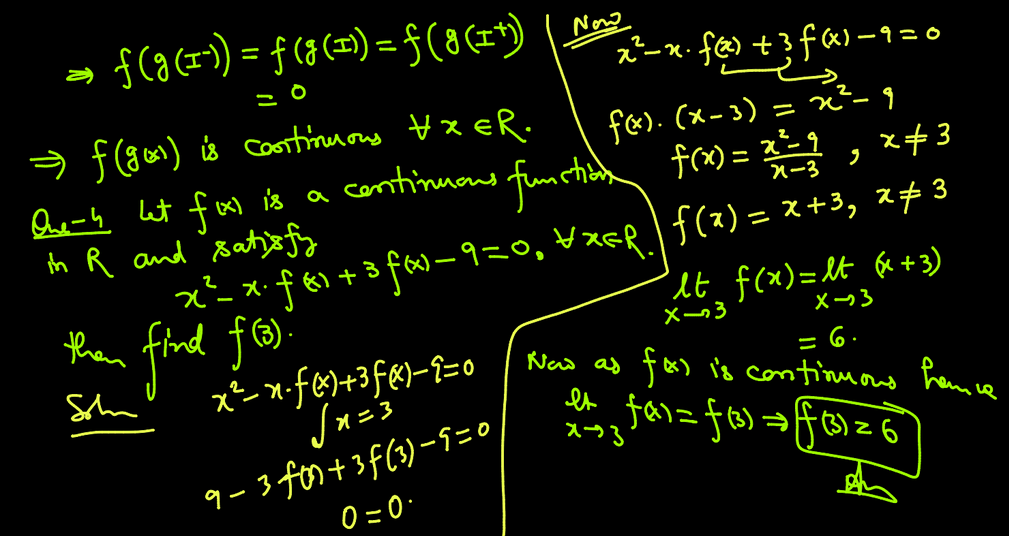 ⇒ f(g(I⁻)) = f(g(I)) = f(g(I⁺)
= 0
⇒ f(g(x)) is continuous ∀ x ∈ R.
Que-4 Let f(x) is a continuous function
in R and satisfy
x² - x. f(x) + 3 f(x) - 9 = 0, ∀ x ∈ R.
then find f(3).
Soln
x² - x. f(x) + 3 f(x) - 9 = 0
∫ x = 3
9 - 3 f(3) + 3 f(3) - 9 = 0
0 = 0.
Now
x² - x. f(x) + 3 f(x) - 9 = 0
f(x). (x - 3) = x² - 9
f(x) = x² - 9 / x - 3 , x ≠ 3
f(x) = x + 3, x ≠ 3
lt x→3 f(x) = lt x→3 (x + 3)
= 6.
Now as f(x) is continuous hence
lt x→3 f(x) = f(3) ⇒ f(3) = 6
Ans